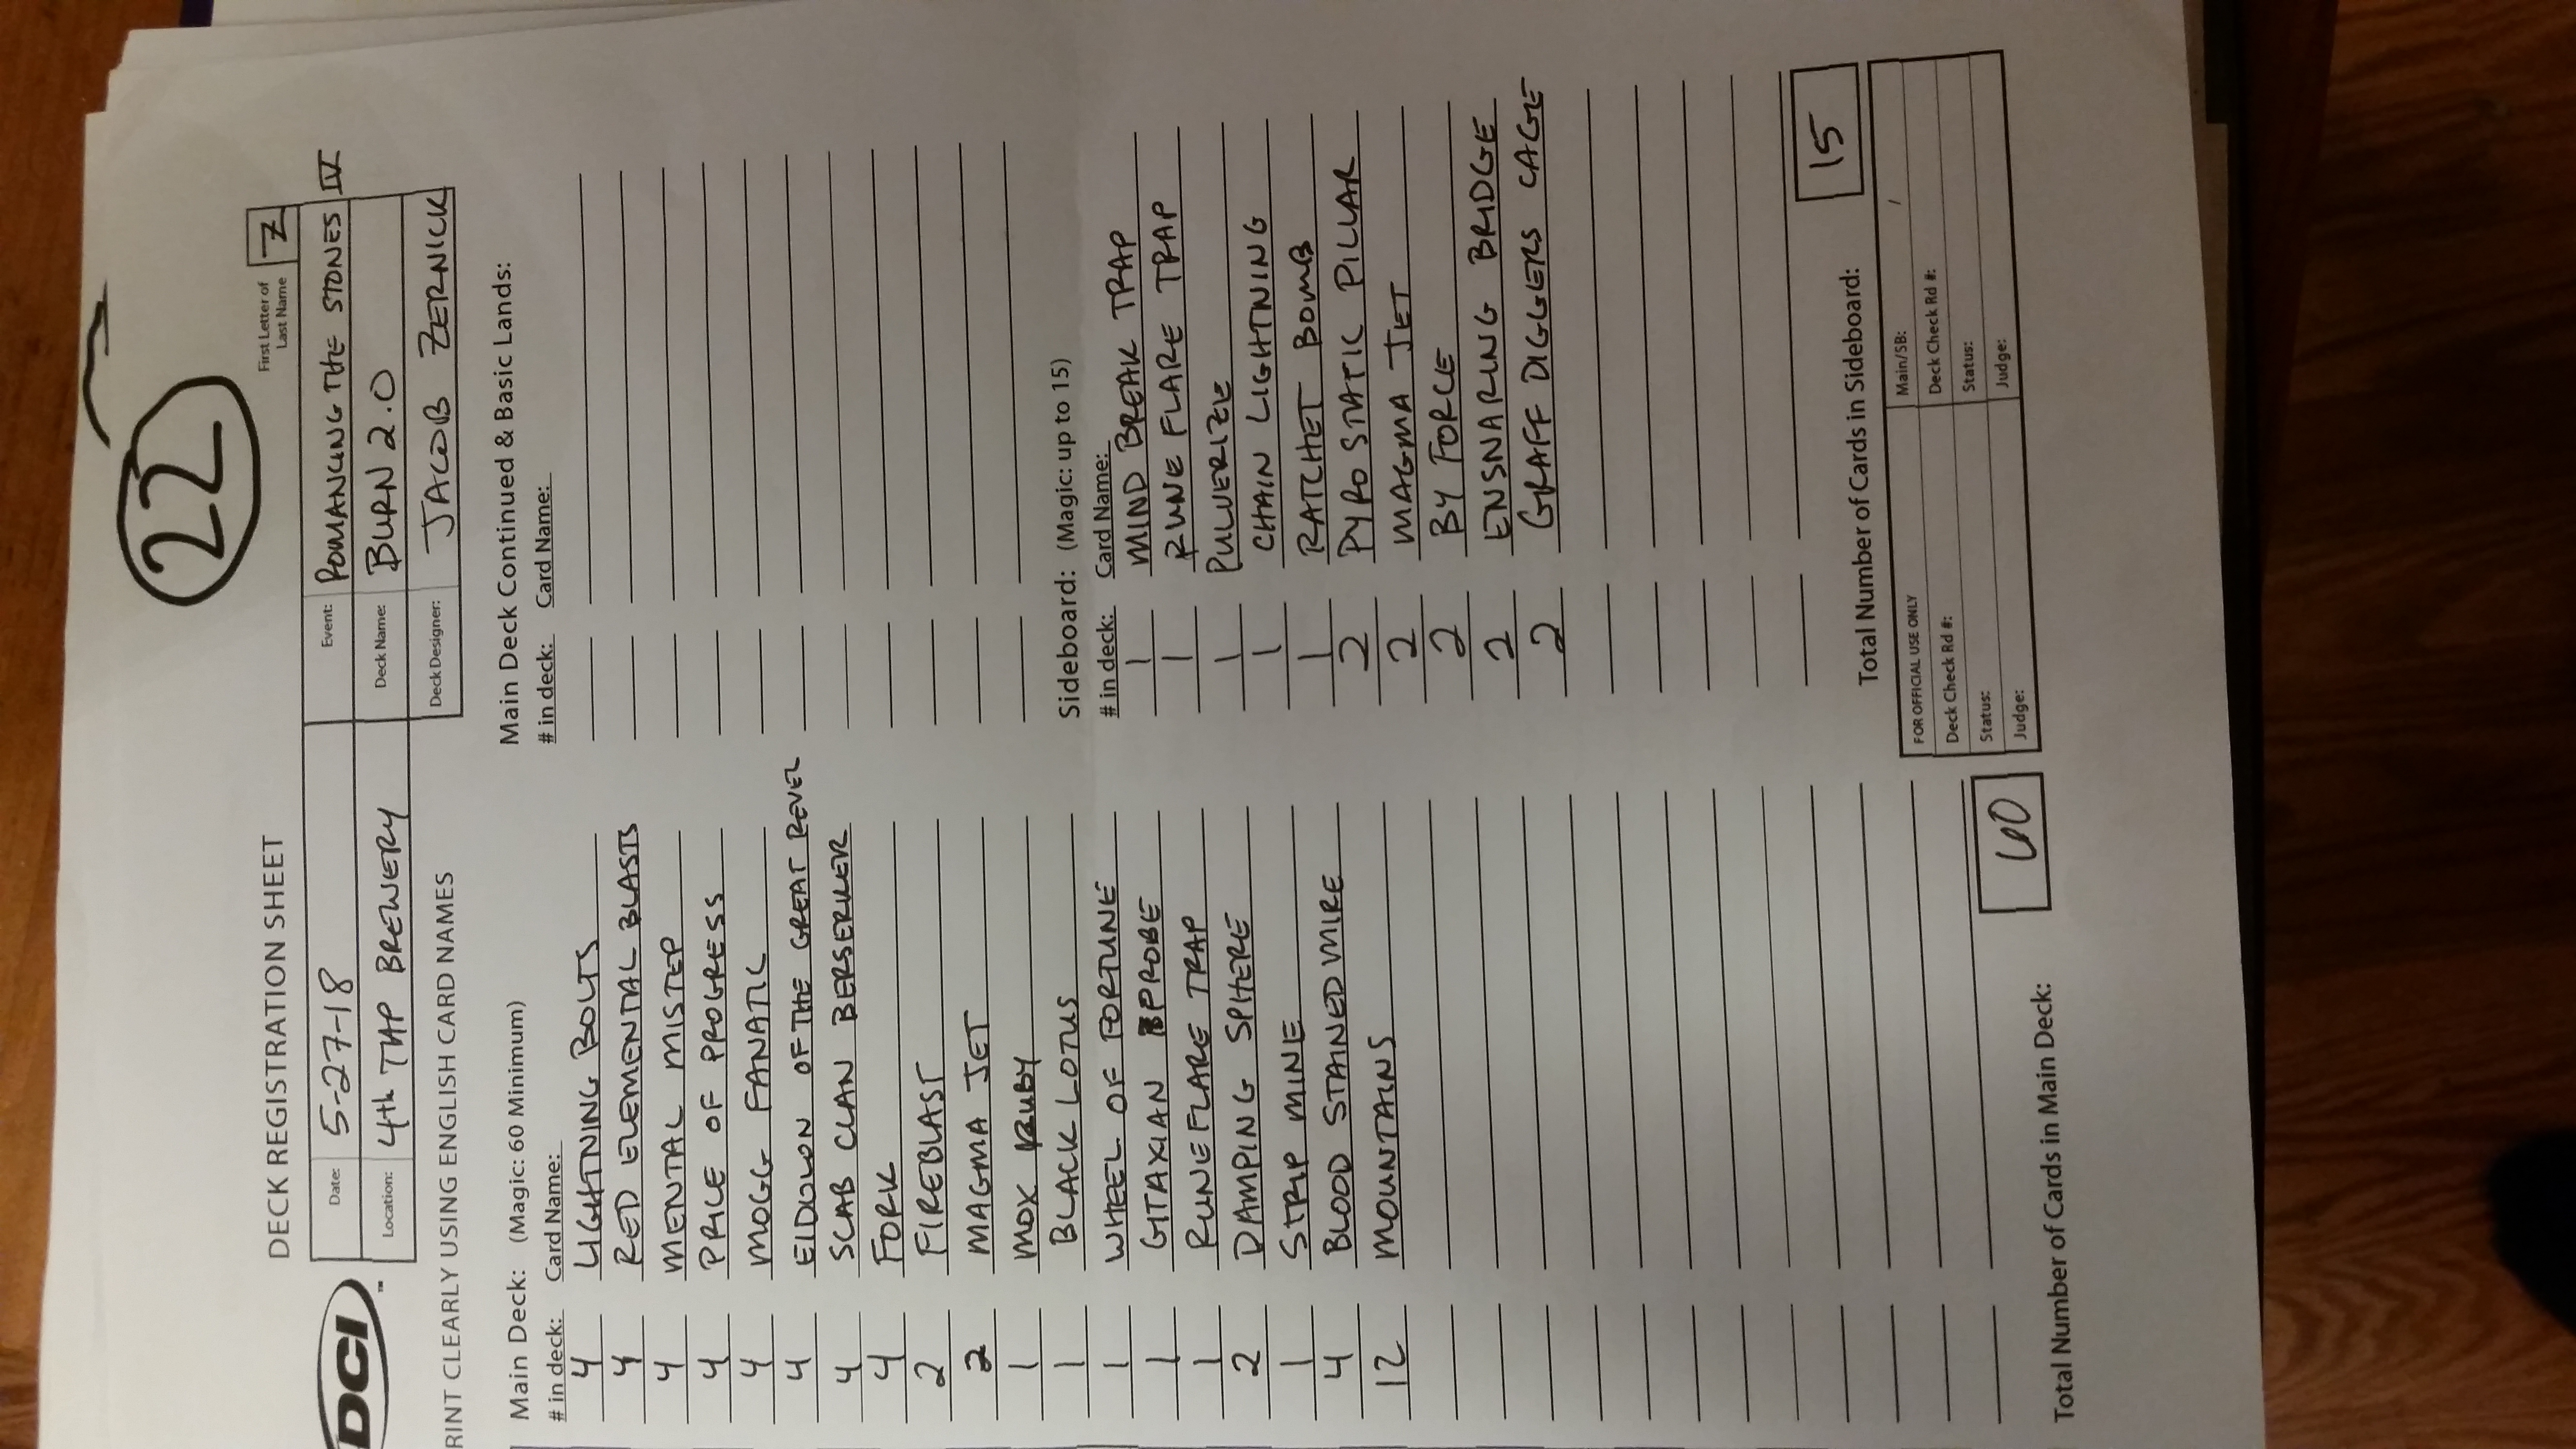 22
DECK REGISTRATION SHEET
First Letter of
Last Name
Z
DCI
™
Date: 5-27-18
Event: ROMANCING THE STONES IV
Location: 4th TAP BREWERY
Deck Name: BURN 2.0
Deck Designer: JACOB ZERNICK
RINT CLEARLY USING ENGLISH CARD NAMES
Main Deck: (Magic: 60 Minimum)
# in deck: Card Name:
4 LIGHTNING BOLTS
4 RED ELEMENTAL BLASTS
4 MENTAL MISTEP
4 PRICE OF PROGRESS
4 MOGG FANATIC
4 EIDOLON OF THE GREAT REVEL
4 SCAB CLAN BERSERKER
4 FORK
2 FIREBLAST
2 MAGMA JET
1 MOX RUBY
1 BLACK LOTUS
1 WHEEL OF FORTUNE
1 GITAXIAN PROBE
1 RUNEFLARE TRAP
2 DAMPING SPHERE
1 STRIP MINE
4 BLOOD STAINED MIRE
12 MOUNTAINS
Total Number of Cards in Main Deck: 60
Main Deck Continued & Basic Lands:
# in deck: Card Name:
Sideboard: (Magic: up to 15)
# in deck: Card Name:
1 MIND BREAK TRAP
1 RUNE FLARE TRAP
1 PULVERIZE
1 CHAIN LIGHTNING
1 RATCHET BOMB
2 PYRO STATIC PILLAR
2 MAGMA JET
2 BY FORCE
2 ENSNARING BRIDGE
2 GRAFF DIGGERS CAGE
Total Number of Cards in Sideboard: 15
FOR OFFICIAL USE ONLY
Main/SB: /
Deck Check Rd #:
Deck Check Rd #:
Status:
Status:
Judge:
Judge: